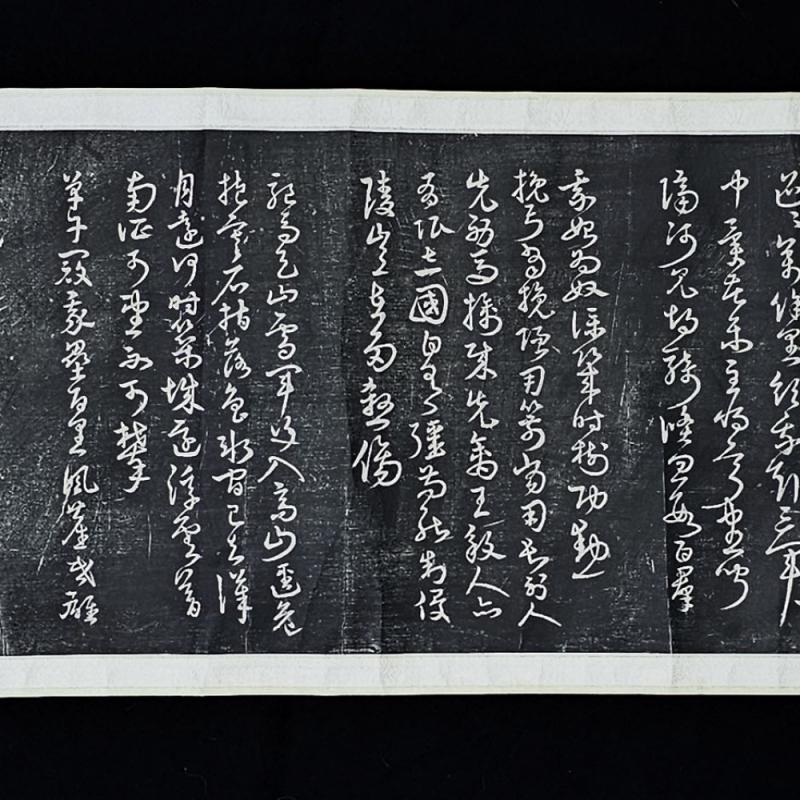 迢迢萬餘里領我赴三軍軍
中異苦樂主將寧盡聞
隔河見胡騎倏忽數百群
我始為奴僕幾時樹功勳
挽弓當挽強用箭當用長射人
先射馬擒賊先擒王殺人亦
有限立國自有疆苟能制侵
陵豈在多殺傷
驅馬天雨雪軍行入高山逕危
抱寒石指落曾冰間已去漢
月遠何時築城還浮雲暮
南征可望不可攀
單于寇我壘百里風塵昏雄